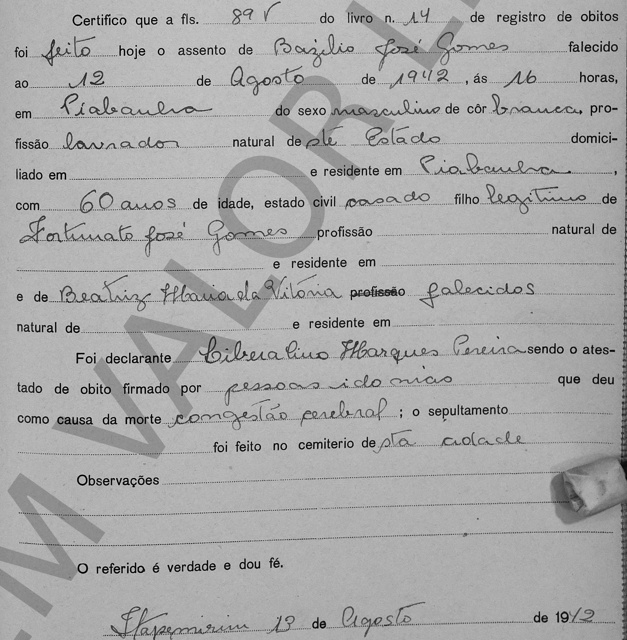 Certifico que a fls. 89 V do livro n. 14 de registro de obitos
foi feito hoje o assento de Bazilio José Gomes falecido
ao 12 de Agosto de 1942, ás 16 horas,
em Piabanha do sexo masculino de côr branca, pro-
fissão lavrador natural de ste Estado domici-
liado em e residente em Piabanha,
com 60 anos de idade, estado civil casado filho legitimo de
Fortunato José Gomes profissão natural de
e residente em
e de Beatriz Maria da Vitória profissão falecidos
natural de e residente em
Foi declarante Liberalino Marques Pereira sendo o ates-
tado de obito firmado por pessoas idonias que deu
como causa da morte congestão cerebral; o sepultamento
foi feito no cemiterio de sta cidade
Observações
O referido é verdade e dou fé.
Itapemirim 13 de Agosto de 1942
M VALOR L